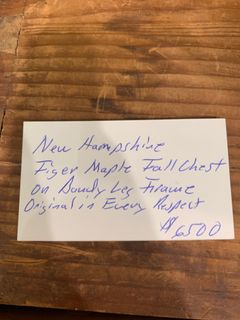 New Hampshire
Figer Maple Tall Chest
on Bandy Leg Frame
Original in Every Respect
$6500